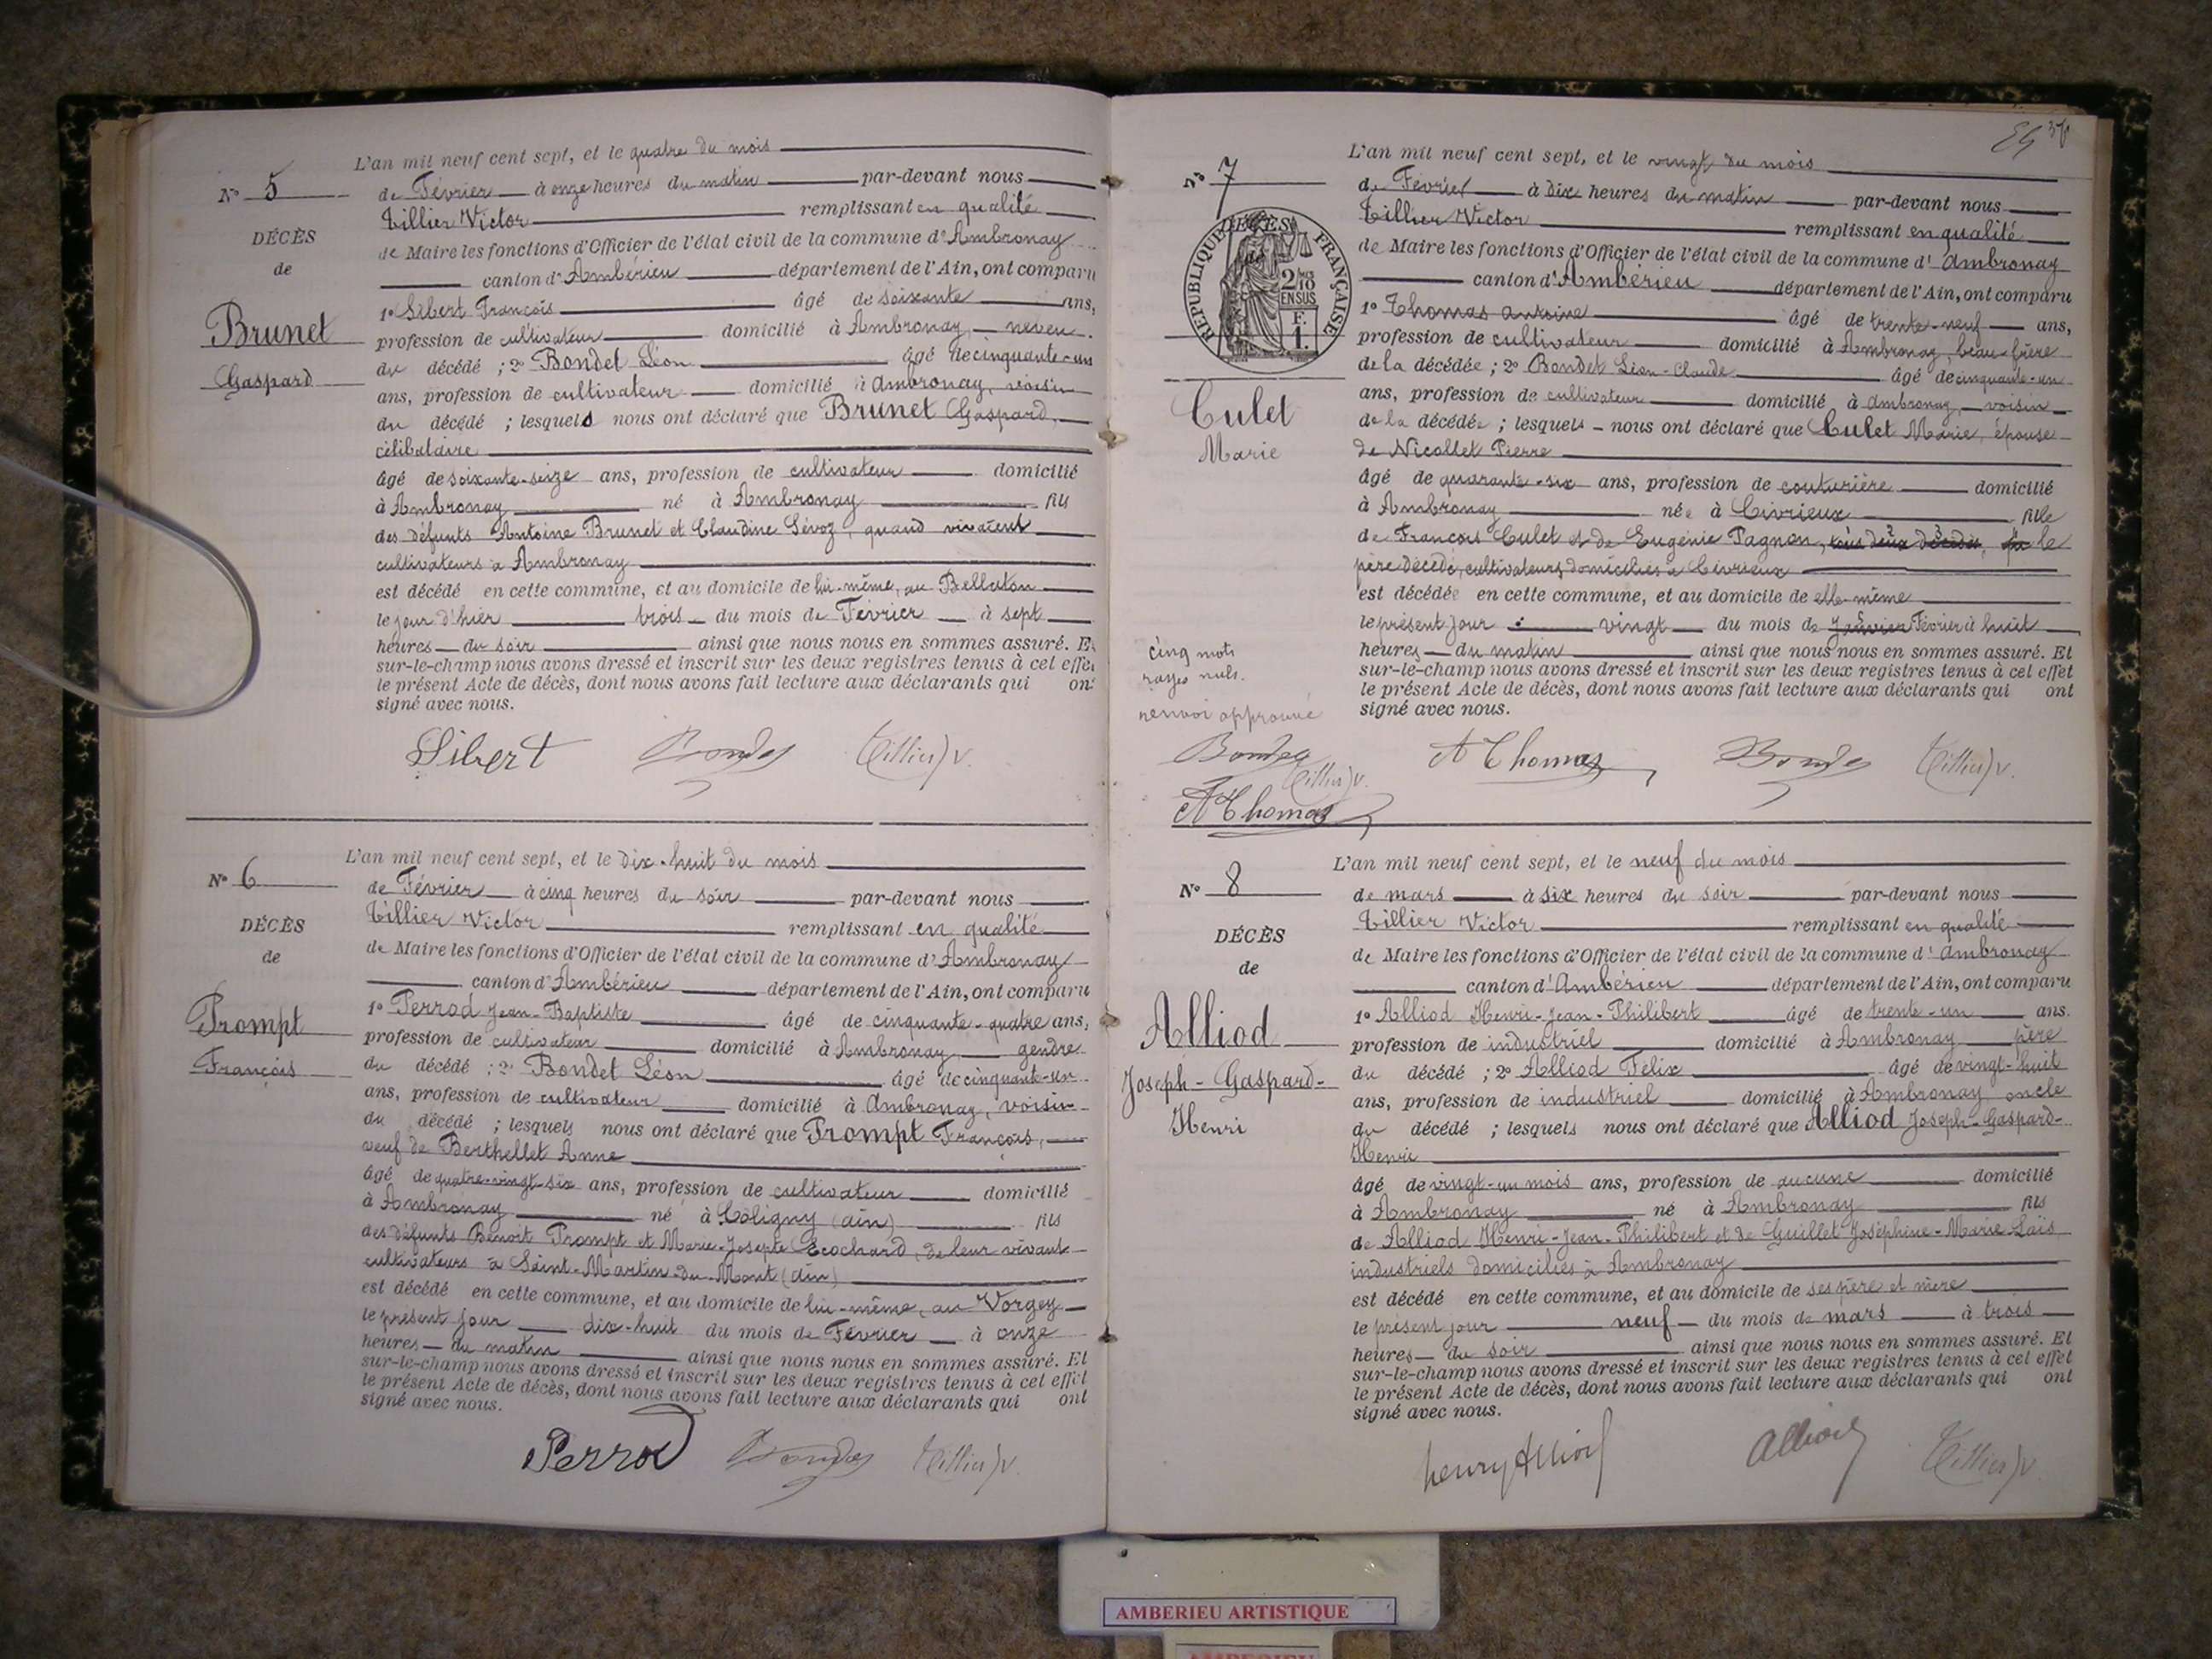 N° 5
DÉCÈS
de
Brunet
Gaspard
L'an mil neuf cent sept, et le quatre du mois
de Février à onze heures du matin par-devant nous
Tillier Victor remplissant en qualité
de Maire les fonctions d'Officier de l'état civil de la commune d'Ambronay
canton d'Ambérieu département de l'Ain, ont comparu
1° Sibert François âgé de soixante ans,
profession de cultivateur domicilié à Ambronay, neveu
du décédé ; 2° Bondet Léon âgé de cinquante-un
ans, profession de cultivateur domicilié à Ambronay, voisin
du décédé ; lesquels nous ont déclaré que Brunet Gaspard,
célibataire
âgé de soixante-seize ans, profession de cultivateur domicilié
à Ambronay né à Ambronay fils
des défunts Antoine Brunet et Claudine Sévoz, quand vivaient
cultivateurs à Ambronay
est décédé en cette commune, et au domicile de lui-même, au Bellaton
le jour d'hier trois du mois de Février à sept
heures du soir ainsi que nous nous en sommes assuré. Et
sur-le-champ nous avons dressé et inscrit sur les deux registres tenus à cet effet
le présent Acte de décès, dont nous avons fait lecture aux déclarants qui ont
signé avec nous.
Sibert Bondet Tillier V.
N° 6
DÉCÈS
de
Prompt
François
L'an mil neuf cent sept, et le dix-huit du mois
de Février à cinq heures du soir par-devant nous
Tillier Victor remplissant en qualité
de Maire les fonctions d'Officier de l'état civil de la commune d'Ambronay
canton d'Ambérieu département de l'Ain, ont comparu
1° Perrod Jean-Baptiste âgé de cinquante-quatre ans,
profession de cultivateur domicilié à Ambronay, gendre
du décédé ; 2° Bondet Léon âgé de cinquante-un
ans, profession de cultivateur domicilié à Ambronay, voisin
du décédé ; lesquels nous ont déclaré que Prompt François,
veuf de Berthellet Anne
âgé de quatre-vingt-six ans, profession de cultivateur domicilié
à Ambronay né à Coligny (ain) fils
des défunts Benoit Prompt et Marie-Josephe Ecochard, de leur vivant
cultivateurs à Saint-Martin-du-Mont (ain)
est décédé en cette commune, et au domicile de lui-même, au Vorgey
le présent jour dix-huit du mois de Février à onze
heures du matin ainsi que nous nous en sommes assuré. Et
sur-le-champ nous avons dressé et inscrit sur les deux registres tenus à cet effet
le présent Acte de décès, dont nous avons fait lecture aux déclarants qui ont
signé avec nous.
Perrod Bondet Tillier V.
N° 7
DÉCÈS
RÉPUBLIQUE FRANÇAISE
2/10 EN SUS
F. 1.
Culet
Marie
L'an mil neuf cent sept, et le vingt du mois
de Février à dix heures du matin par-devant nous
Tillier Victor remplissant en qualité
de Maire les fonctions d'Officier de l'état civil de la commune d'Ambronay
canton d'Ambérieu département de l'Ain, ont comparu
1° Thomas antoine âgé de trente-neuf ans,
profession de cultivateur domicilié à Ambronay, beau-frère
de la décédée ; 2° Bondet Léon-Claude âgé de cinquante-un
ans, profession de cultivateur domicilié à Ambronay, voisin
de la décédée ; lesquels nous ont déclaré que Culet Marie, épouse
de Nicollet Pierre
âgé de quarante-six ans, profession de couturière domicilié
à Ambronay née à Civrieux fille
de François Culet et de Eugénie Pagnon, tous deux décédés, le
père décédé, cultivateurs domiciliés à Civrieux
est décédée en cette commune, et au domicile de elle-même
le présent jour vingt du mois de Janvier Février à huit
heures du matin ainsi que nous nous en sommes assuré. Et
sur-le-champ nous avons dressé et inscrit sur les deux registres tenus à cet effet
le présent Acte de décès, dont nous avons fait lecture aux déclarants qui ont
signé avec nous.
cinq mots
rayés nuls.
renvoi approuvé
Bondet
Tillier V.
A Thomas
A Thomas Bondet Tillier V.
N° 8
DÉCÈS
de
Alliod
Joseph-Gaspard-
Henri
L'an mil neuf cent sept, et le neuf du mois
de mars à six heures du soir par-devant nous
Tillier Victor remplissant en qualité
de Maire les fonctions d'Officier de l'état civil de la commune d'Ambronay
canton d'Ambérieu département de l'Ain, ont comparu
1° Alliod Henri-Jean-Philibert âgé de trente-un ans.
profession de industriel domicilié à Ambronay père
du décédé ; 2° Alliod Félix âgé de vingt-huit
ans, profession de industriel domicilié à Ambronay oncle
du décédé ; lesquels nous ont déclaré que Alliod Joseph-Gaspard-
Henri
âgé de vingt-un mois ans, profession de aucune domicilié
à Ambronay né à Ambronay fils
de Alliod Henri-Jean-Philibert et de Guillet Joséphine-Marie-Laïs
industriels domiciliés à Ambronay
est décédé en cette commune, et au domicile de ses père et mère
le présent jour neuf du mois de mars à trois
heures du soir ainsi que nous nous en sommes assuré. Et
sur-le-champ nous avons dressé et inscrit sur les deux registres tenus à cet effet
le présent Acte de décès, dont nous avons fait lecture aux déclarants qui ont
signé avec nous.
henry Alliod Alliod Tillier V.
AMBERIEU ARTISTIQUE
AMBERIEU